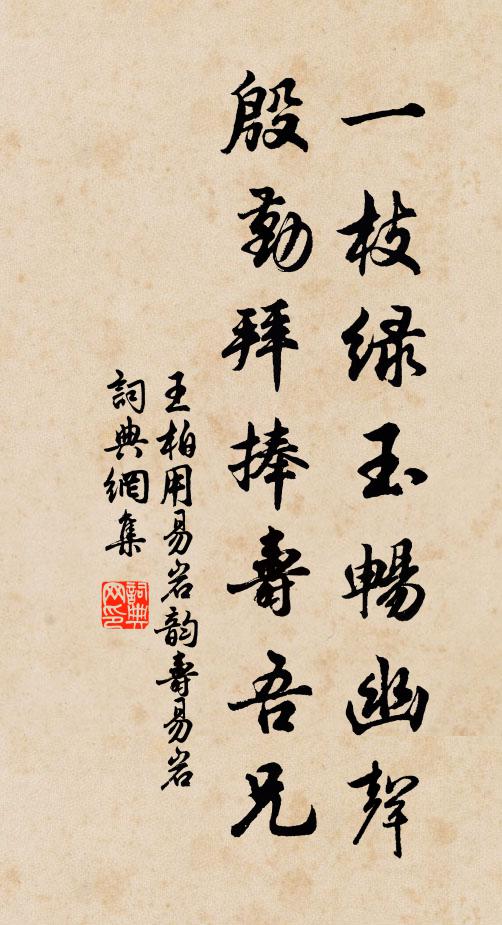 一枝绿玉暢幽聲
殷勤拜捧壽吾兄
王柏用易岩韵壽易岩
詞典網集
詞典网印